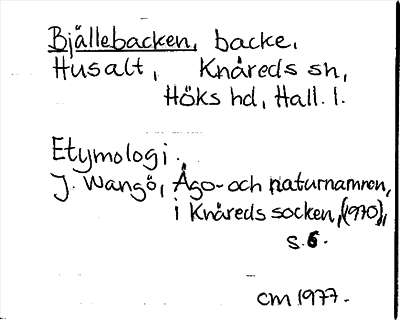 Bjällebacken, backe,
Husalt, Knäreds sn,
Höks hd, Hall. l.
Etymologi.
J. Wangö, Ägo- och naturnamnen,
i Knäreds socken, (1970),
s. 6.
CM 1977.